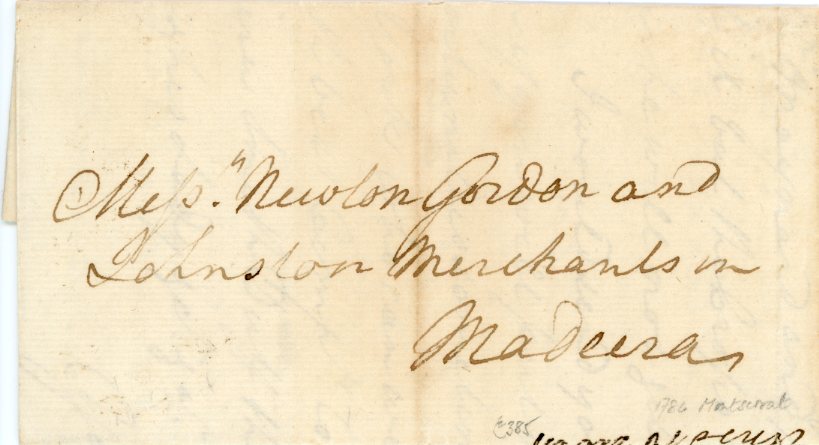 Messrs. Newton Gordon and
Johnston Merchants in
Madeera
1786 Montserrat
£385